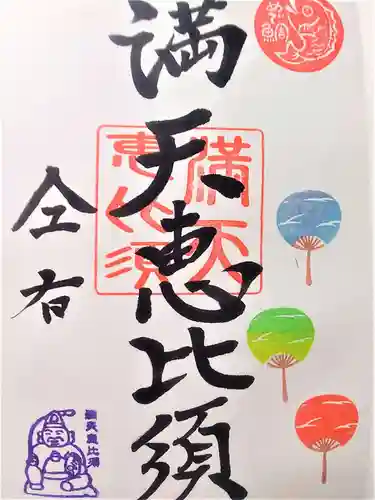 満天恵比須
満天
恵比須
仝右
満天恵比須